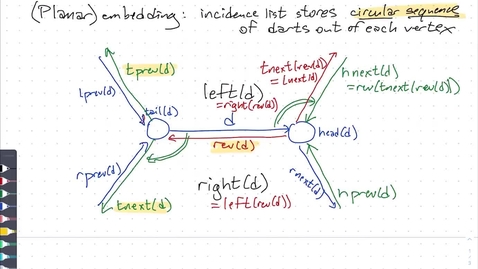 (Planar) embedding: incidence list stores circular sequence
of darts out of each vertex
tprev(d)
tnext(rev(d))
= lnext(d)
hnext(d)
= rev(tnext(rev(d)))
lprev(d)
left(d)
= right(rev(d))
tail(d)
d
head(d)
rev(d)
rprev(d)
right(d)
= left(rev(d))
rnext(d)
tnext(d)
hprev(d)